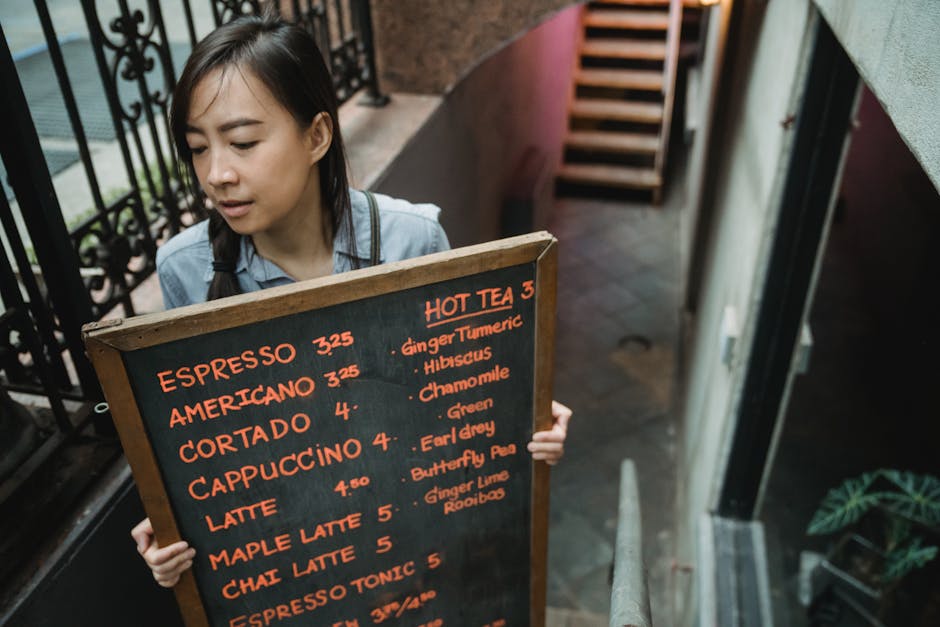 ESPRESSO 3.25
AMERICANO 3.25
CORTADO 4.
CAPPUCCINO 4.
LATTE 4.50
MAPLE LATTE 5
CHAI LATTE 5
ESPRESSO TONIC 5
3.75/4.50
HOT TEA 3
. Ginger Turmeric
. Hibiscus
. Chamomile
. Green
. Earl Grey
. Butterfly Pea
. Ginger Lime
Rooibos